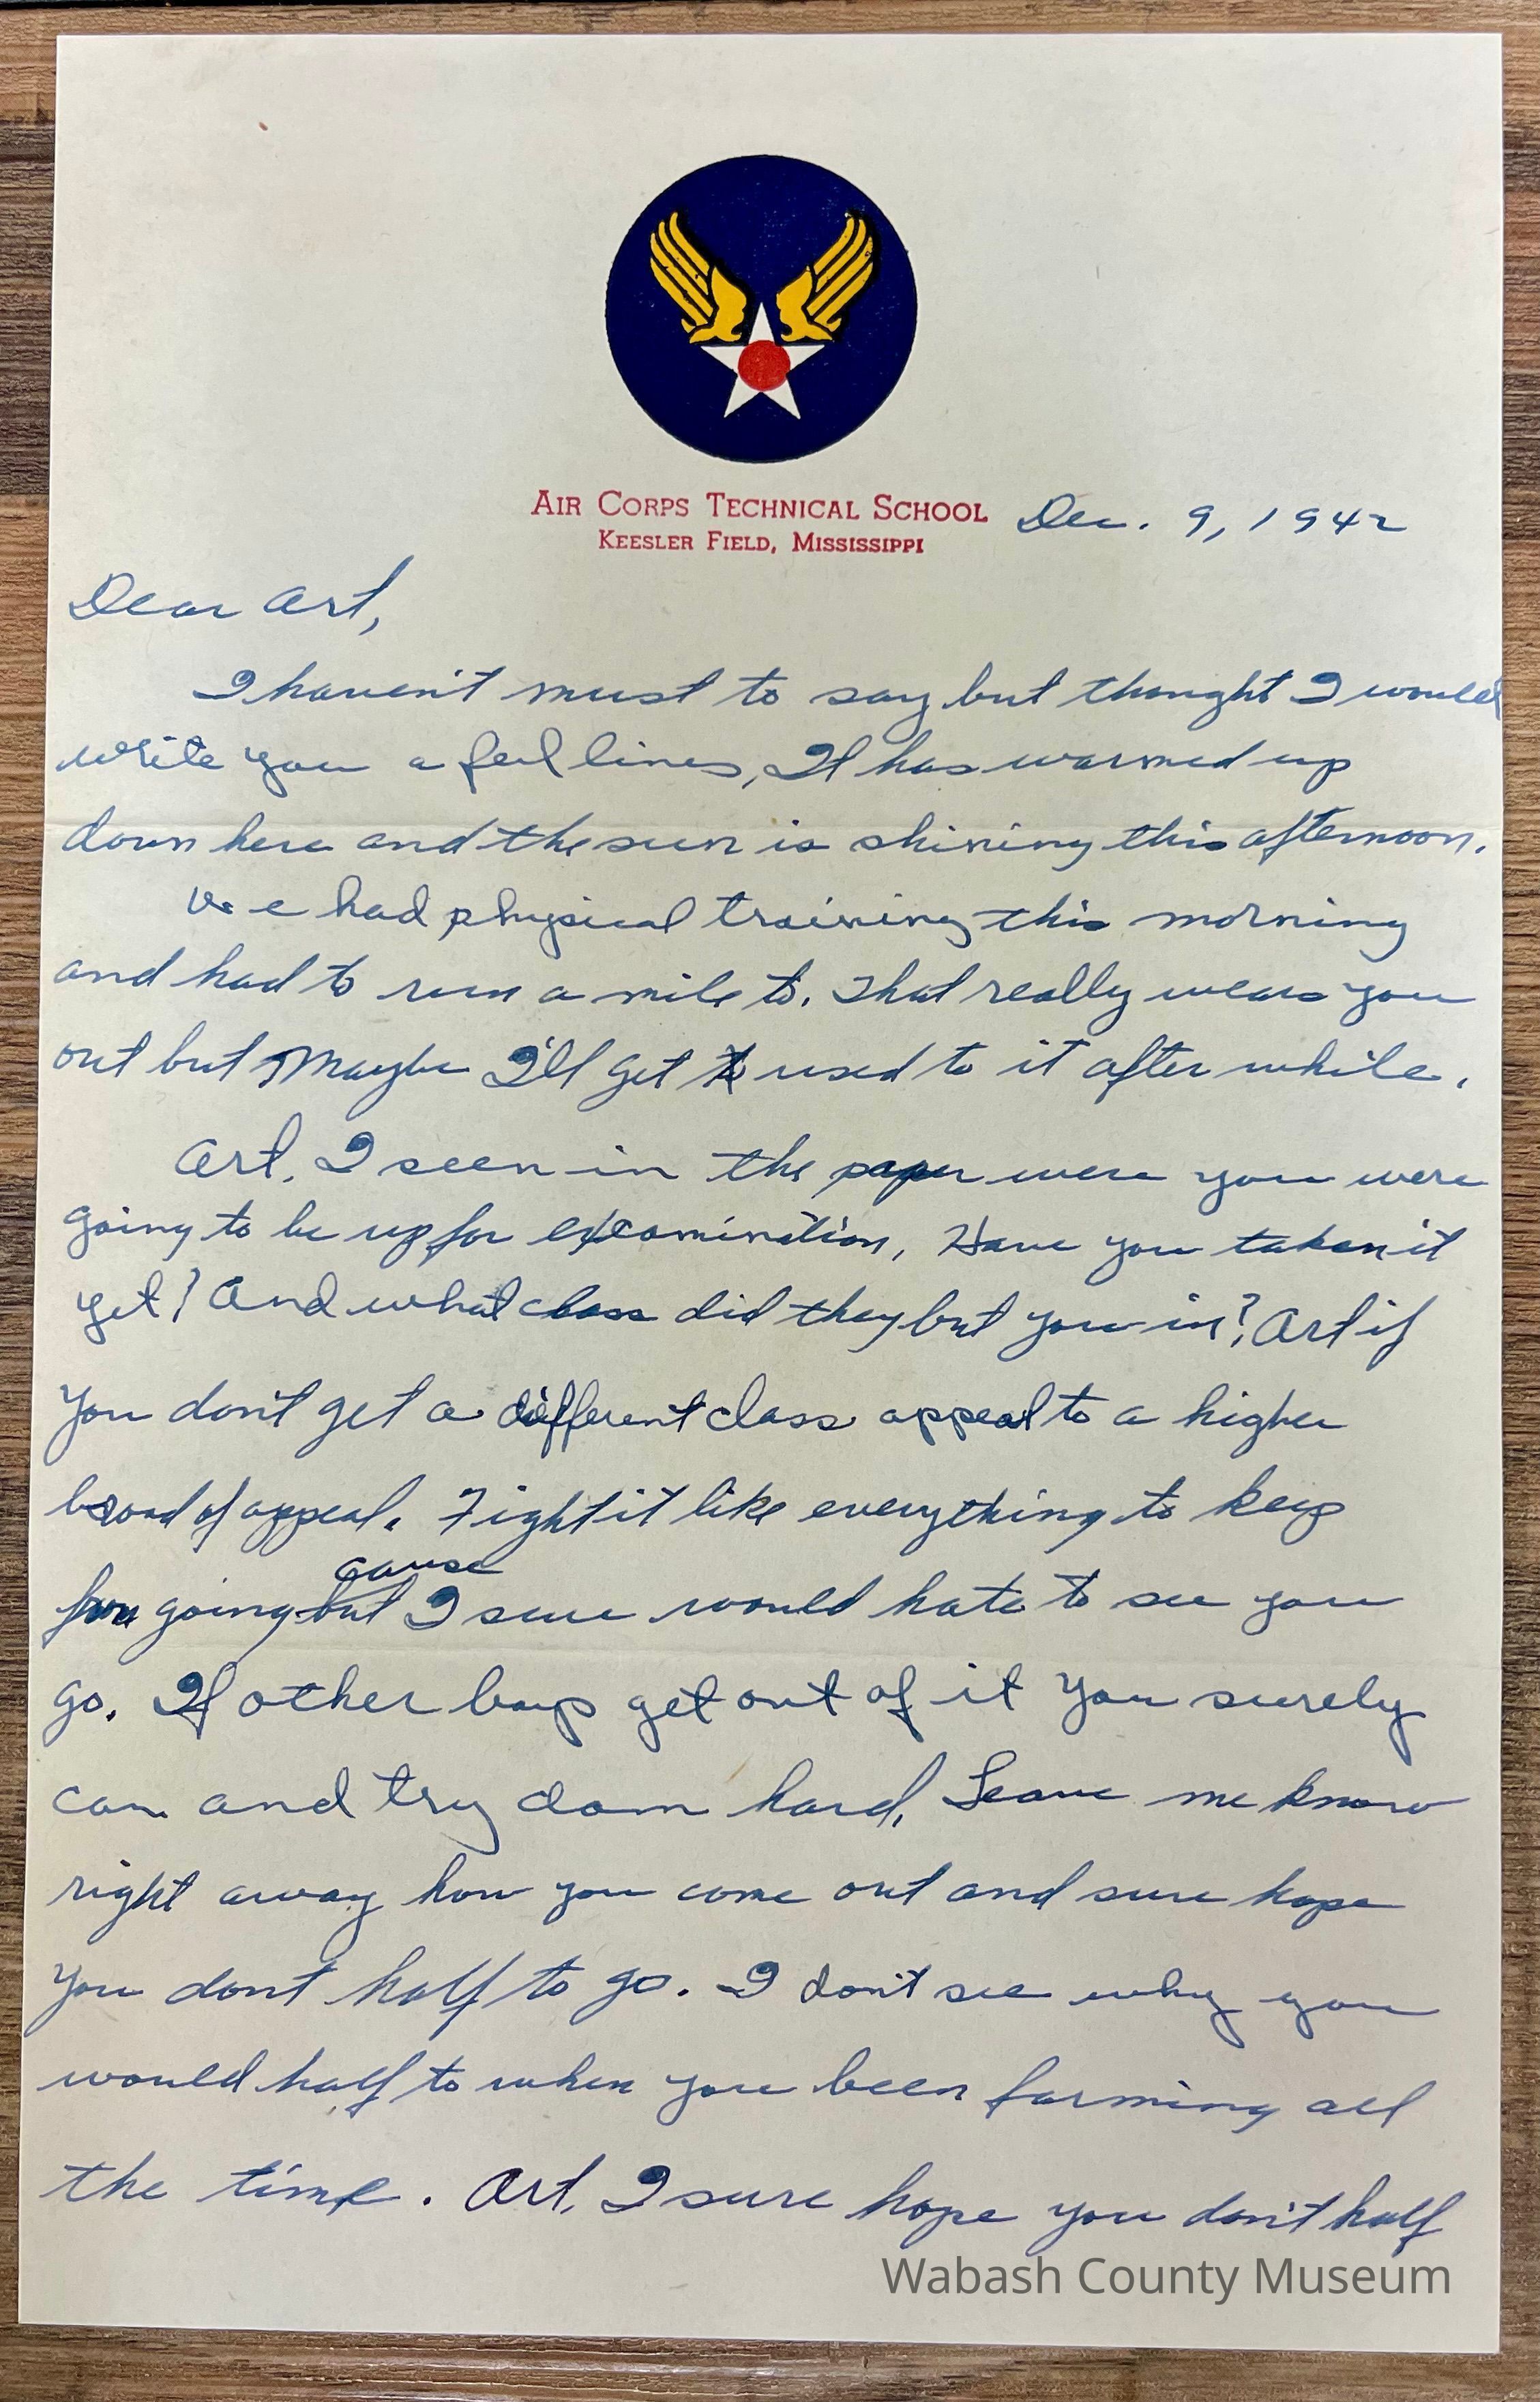 AIR CORPS TECHNICAL SCHOOL
KEESLER FIELD, MISSISSIPPI
Dec. 9, 1942
Dear Art,
I haven't must to say but thought I would
write you a few lines, It has warmed up
down here and the sun is shining this afternoon.
We had physical training this morning
and had to run a mile to. That really wears you
out but Maybe I'll get used to it after while.
Art, I seen in the paper were you were
going to be up for examinition, Have you taken it
yet? And what class did they but you in? Art if
You don't get a different class appeal to a higher
broad of appeal. Fight it like everything to keep
from going but cause I sure would hate to see you
go. If other boys get out of it you surely
can and try dam hard, Leave me know
right away how you come out and sure hope
you dont half to go. I don't see why you
would half to when you been farming all
the time. Art, I sure hope you don't half
Wabash County Museum